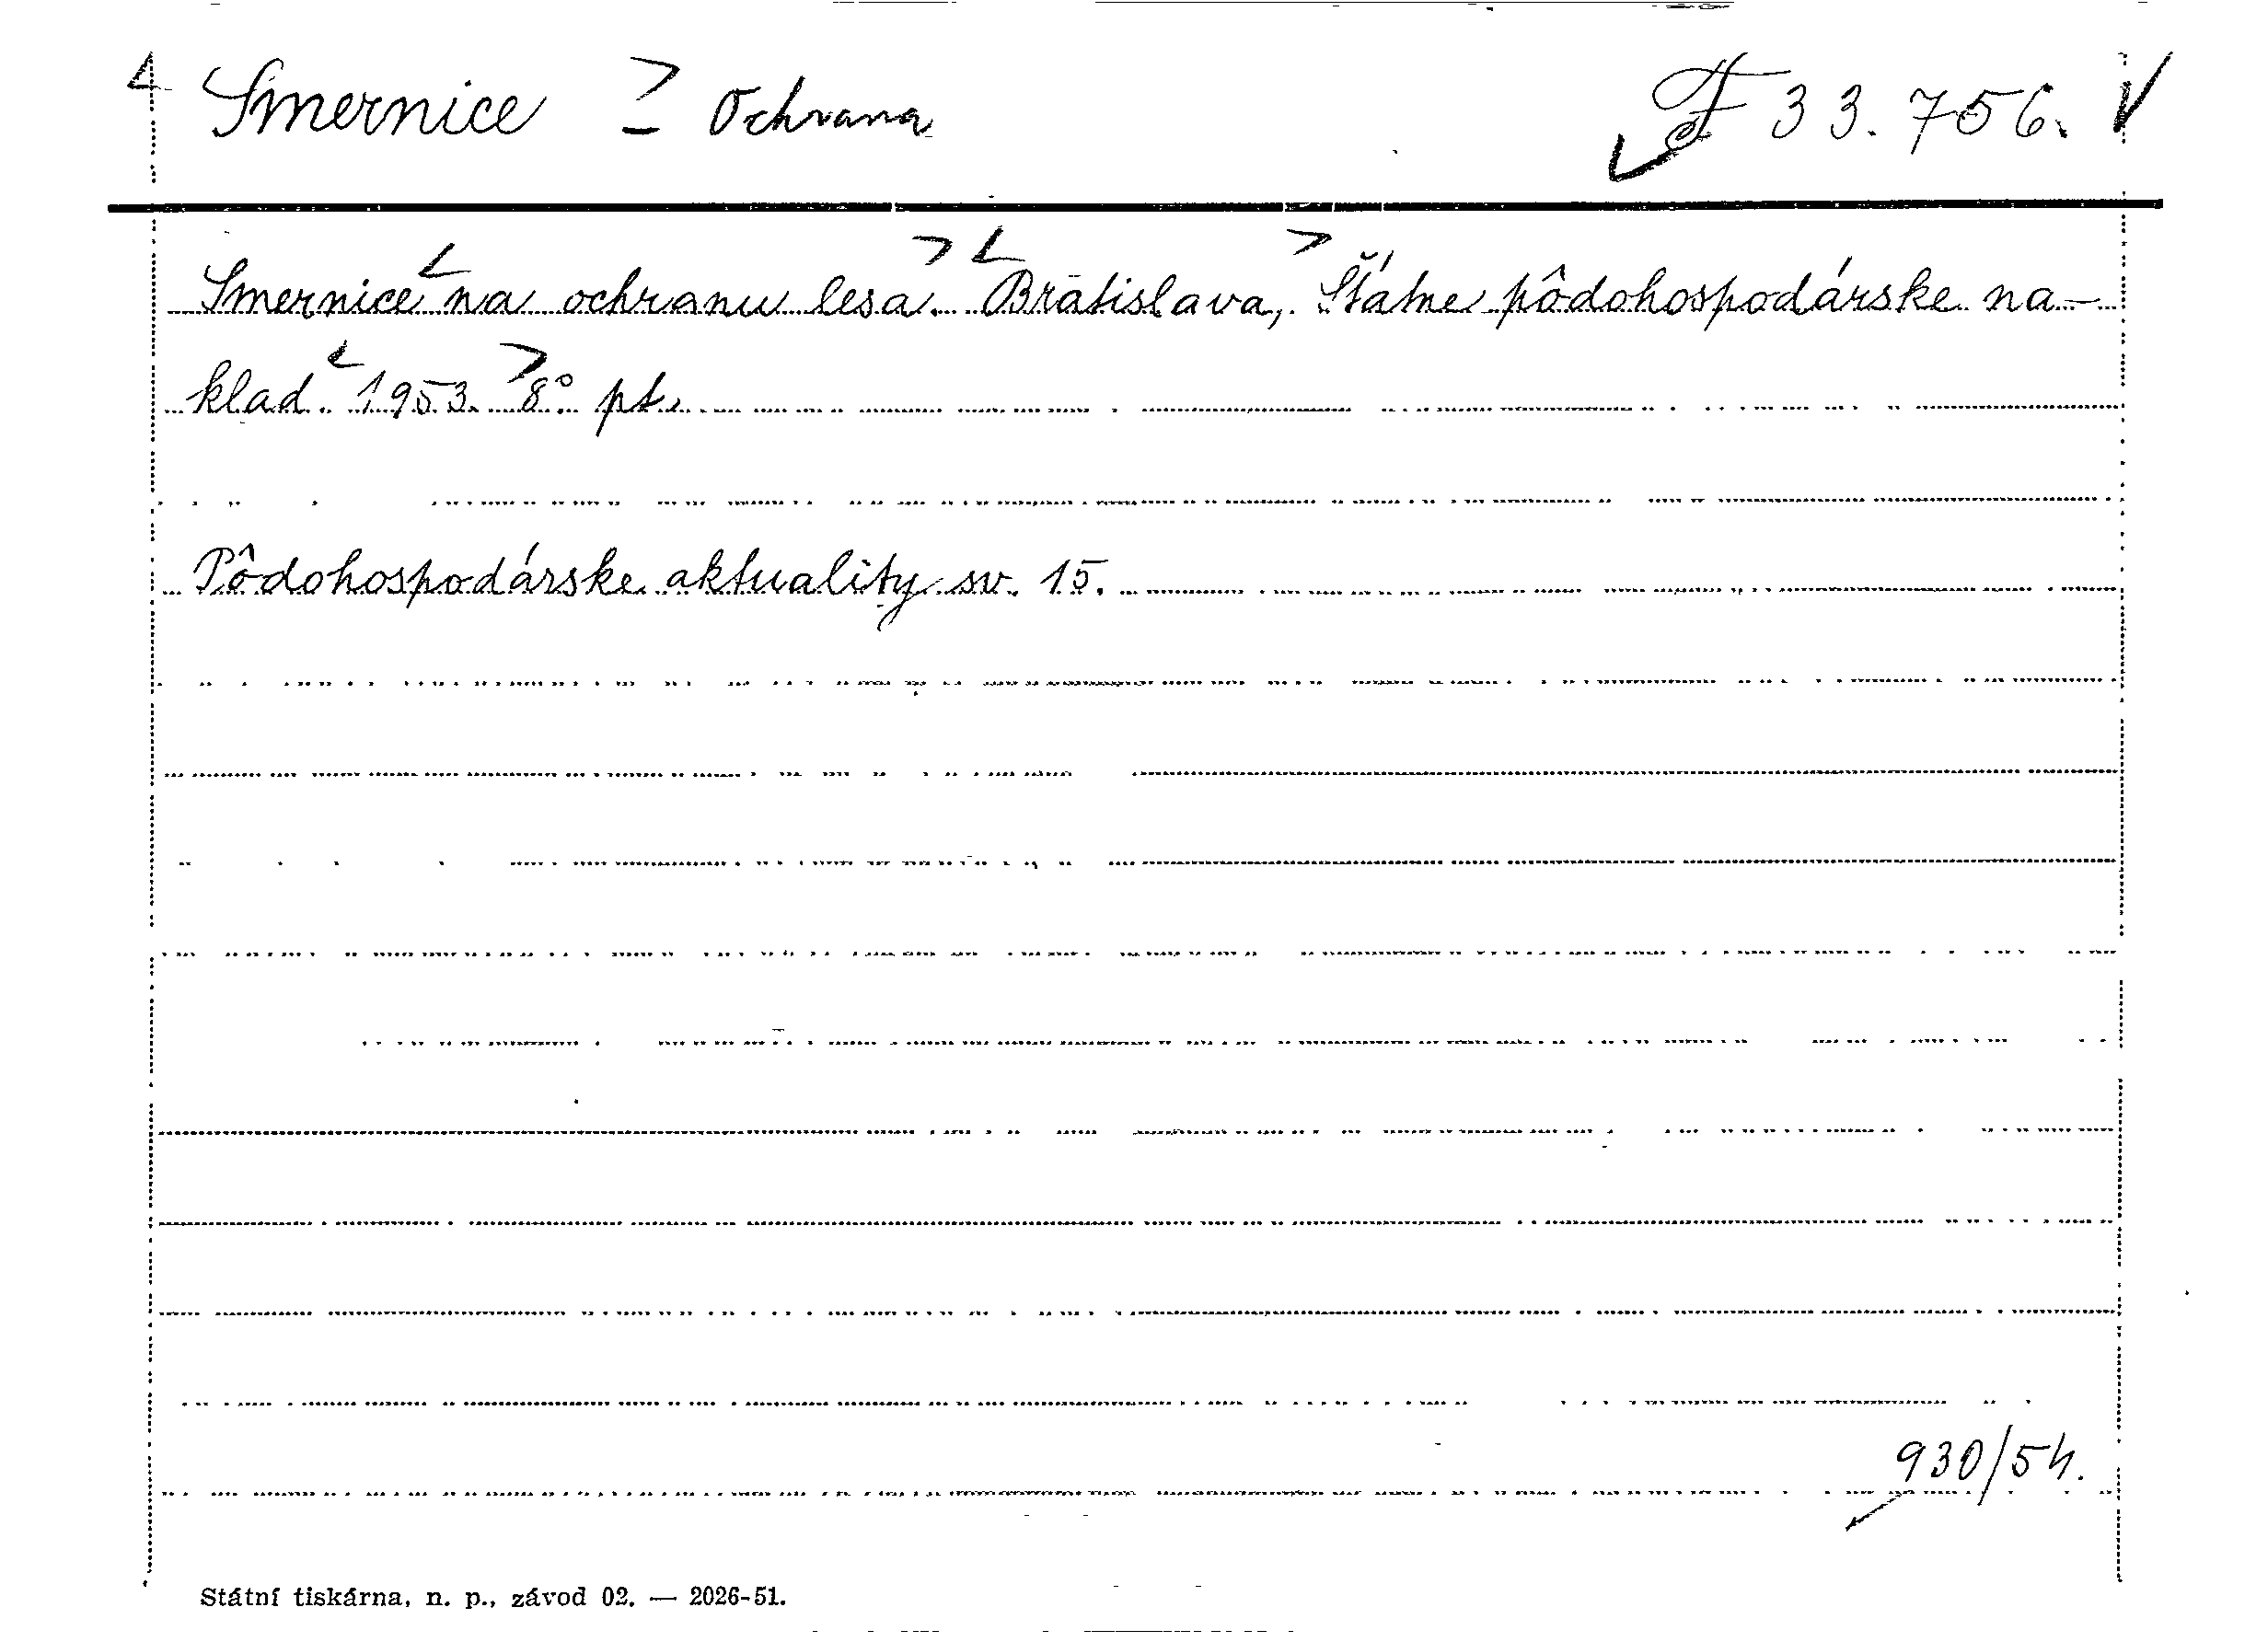 Smernice - Ochrana F 33.756.
Smernice na ochranu lesa. Bratislava, Štátne pôdohospodárske na-
klad. 1953. 8° pt.
Pôdohospodárske aktuality sv. 15.
930/54.
Státní tiskárna, n. p., závod 02. — 2026-51.